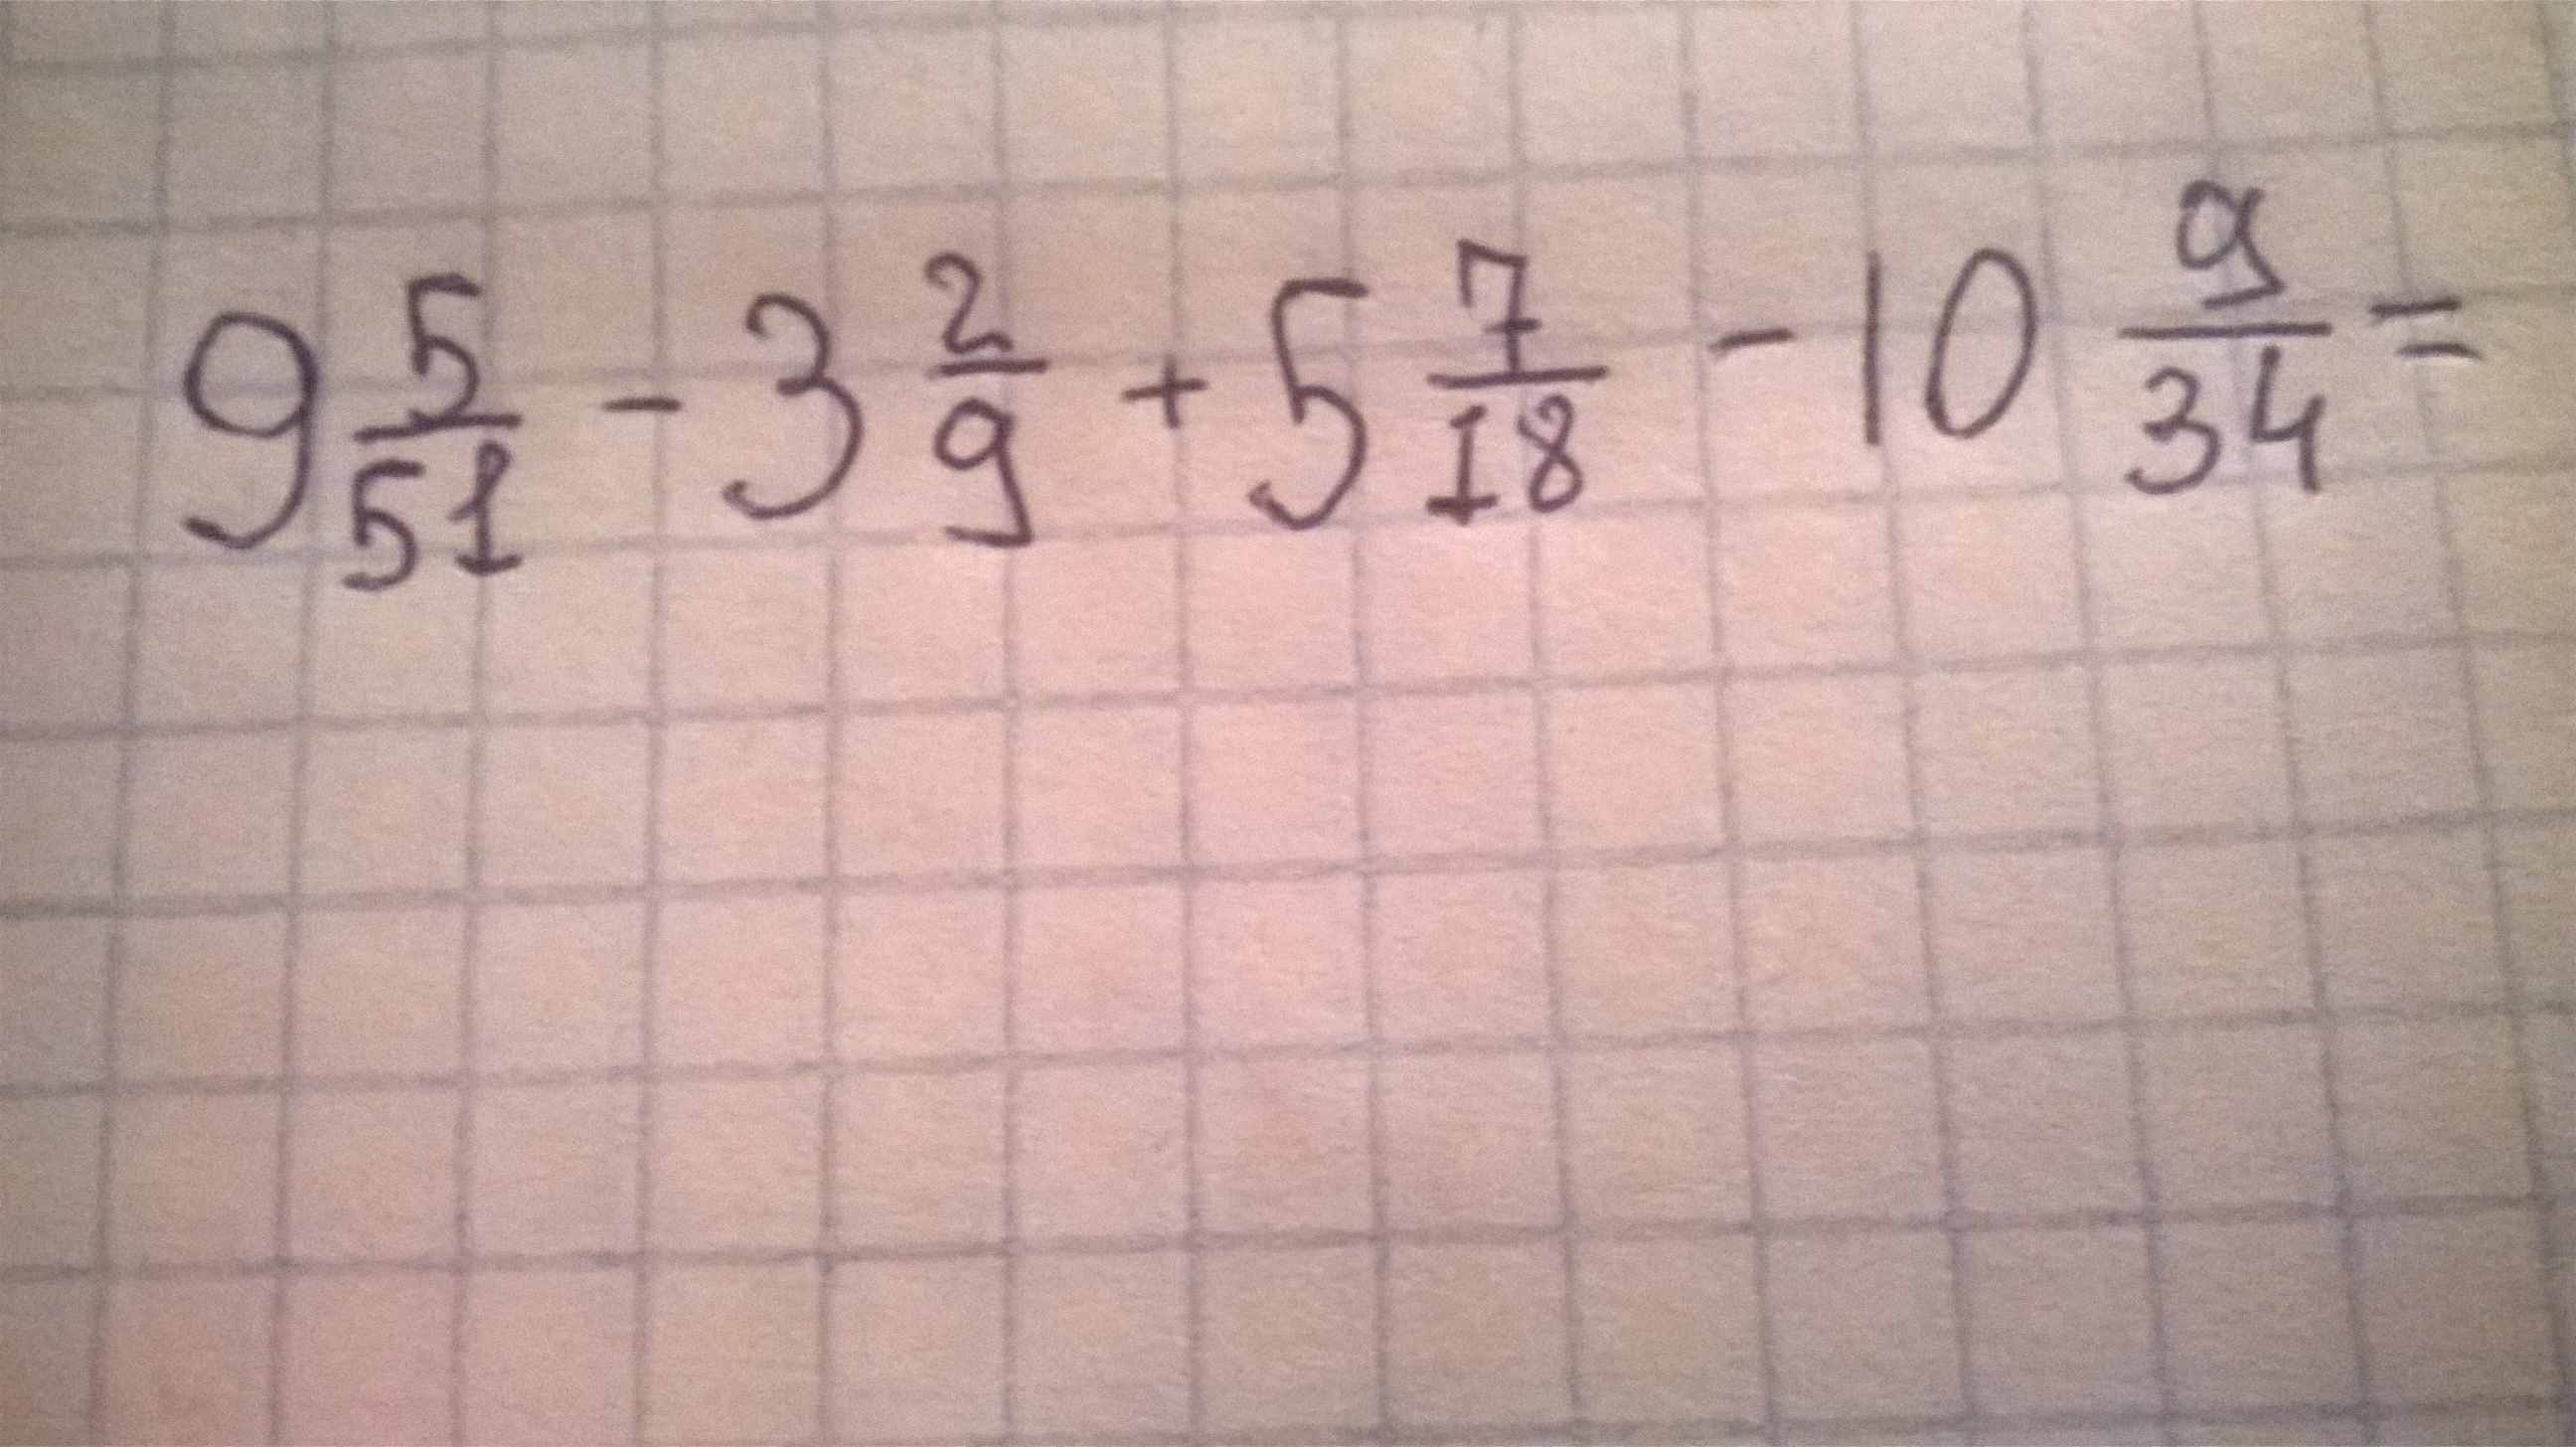 9 5/51 - 3 2/9 + 5 7/18 - 10 9/34 =